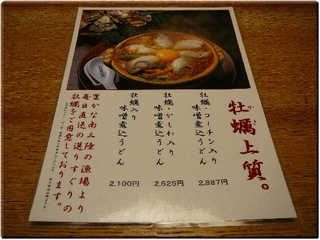 牡蠣上質。
かき
牡蠣・コーチン入り
味噌煮込うどん
2,887円
牡蠣・かしわ入り
味噌煮込うどん
2,625円
牡蠣入り
味噌煮込うどん
2,100円
豊かな南三陸の漁場より
毎日直送の選りすぐりの
牡蠣をご用意しております。